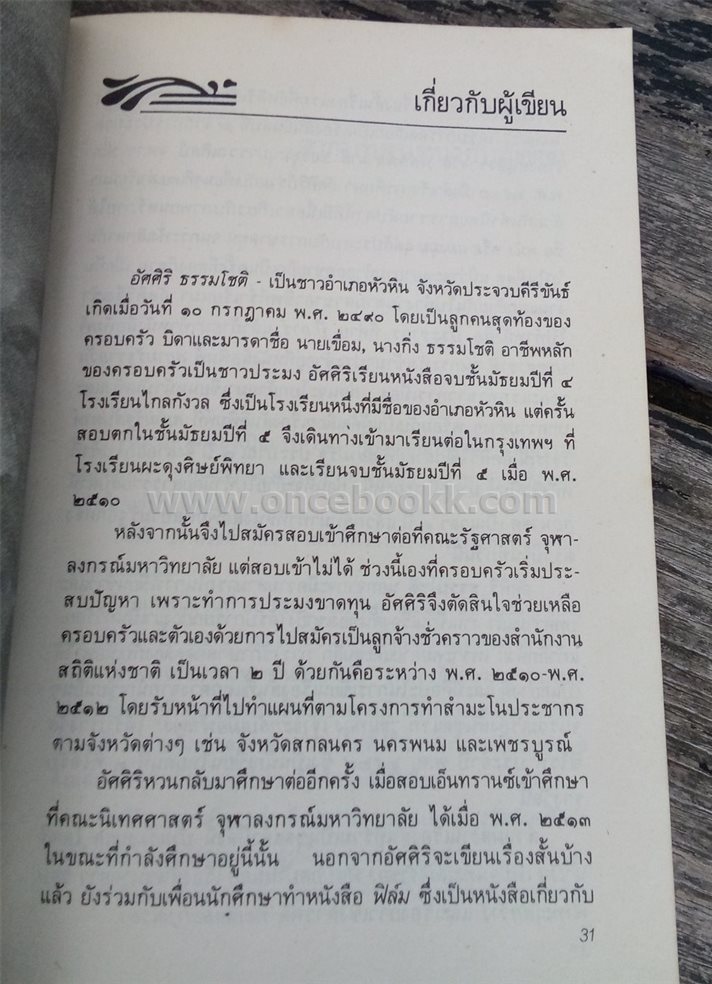 เกี่ยวกับผู้เขียน
อัศศิริ ธรรมโชติ - เป็นชาวอำเภอหัวหิน จังหวัดประจวบคีรีขันธ์
เกิดเมื่อวันที่ ๑๐ กรกฎาคม พ.ศ. ๒๔๙๐ โดยเป็นลูกคนสุดท้องของ
ครอบครัว บิดาและมารดาชื่อ นายเขื่อม, นางกิ่ง ธรรมโชติ อาชีพหลัก
ของครอบครัวเป็นชาวประมง อัศศิริเรียนหนังสือจบชั้นมัธยมปีที่ ๔
โรงเรียนไกลกังวล ซึ่งเป็นโรงเรียนหนึ่งที่มีชื่อของอำเภอหัวหิน แต่ครั้น
สอบตกในชั้นมัธยมปีที่ ๕ จึงเดินทางเข้ามาเรียนต่อในกรุงเทพฯ ที่
โรงเรียนผะดุงศิษย์พิทยา และเรียนจบชั้นมัธยมปีที่ ๕ เมื่อ พ.ศ.
๒๕๑๐
www.oncebookk.com
หลังจากนั้นจึงไปสมัครสอบเข้าศึกษาต่อที่คณะรัฐศาสตร์ จุฬา-
ลงกรณ์มหาวิทยาลัย แต่สอบเข้าไม่ได้ ช่วงนี้เองที่ครอบครัวเริ่มประ-
สบปัญหา เพราะทำการประมงขาดทุน อัศศิริจึงตัดสินใจช่วยเหลือ
ครอบครัวและตัวเองด้วยการไปสมัครเป็นลูกจ้างชั่วคราวของสำนักงาน
สถิติแห่งชาติ เป็นเวลา ๒ ปี ด้วยกันคือระหว่าง พ.ศ. ๒๕๑๐-พ.ศ.
๒๕๑๒ โดยรับหน้าที่ไปทำแผนที่ตามโครงการทำสำมะโนประชากร
ตามจังหวัดต่างๆ เช่น จังหวัดสกลนคร นครพนม และเพชรบูรณ์
อัศศิริหวนกลับมาศึกษาต่ออีกครั้ง เมื่อสอบเอ็นทรานซ์เข้าศึกษา
ที่คณะนิเทศศาสตร์ จุฬาลงกรณ์มหาวิทยาลัย ได้เมื่อ พ.ศ. ๒๕๑๓
ในขณะที่กำลังศึกษาอยู่นี้นั้น นอกจากอัศศิริจะเขียนเรื่องสั้นบ้าง
แล้ว ยังร่วมกับเพื่อนนักศึกษาทำหนังสือ ฟิล์ม ซึ่งเป็นหนังสือเกี่ยวกับ
31